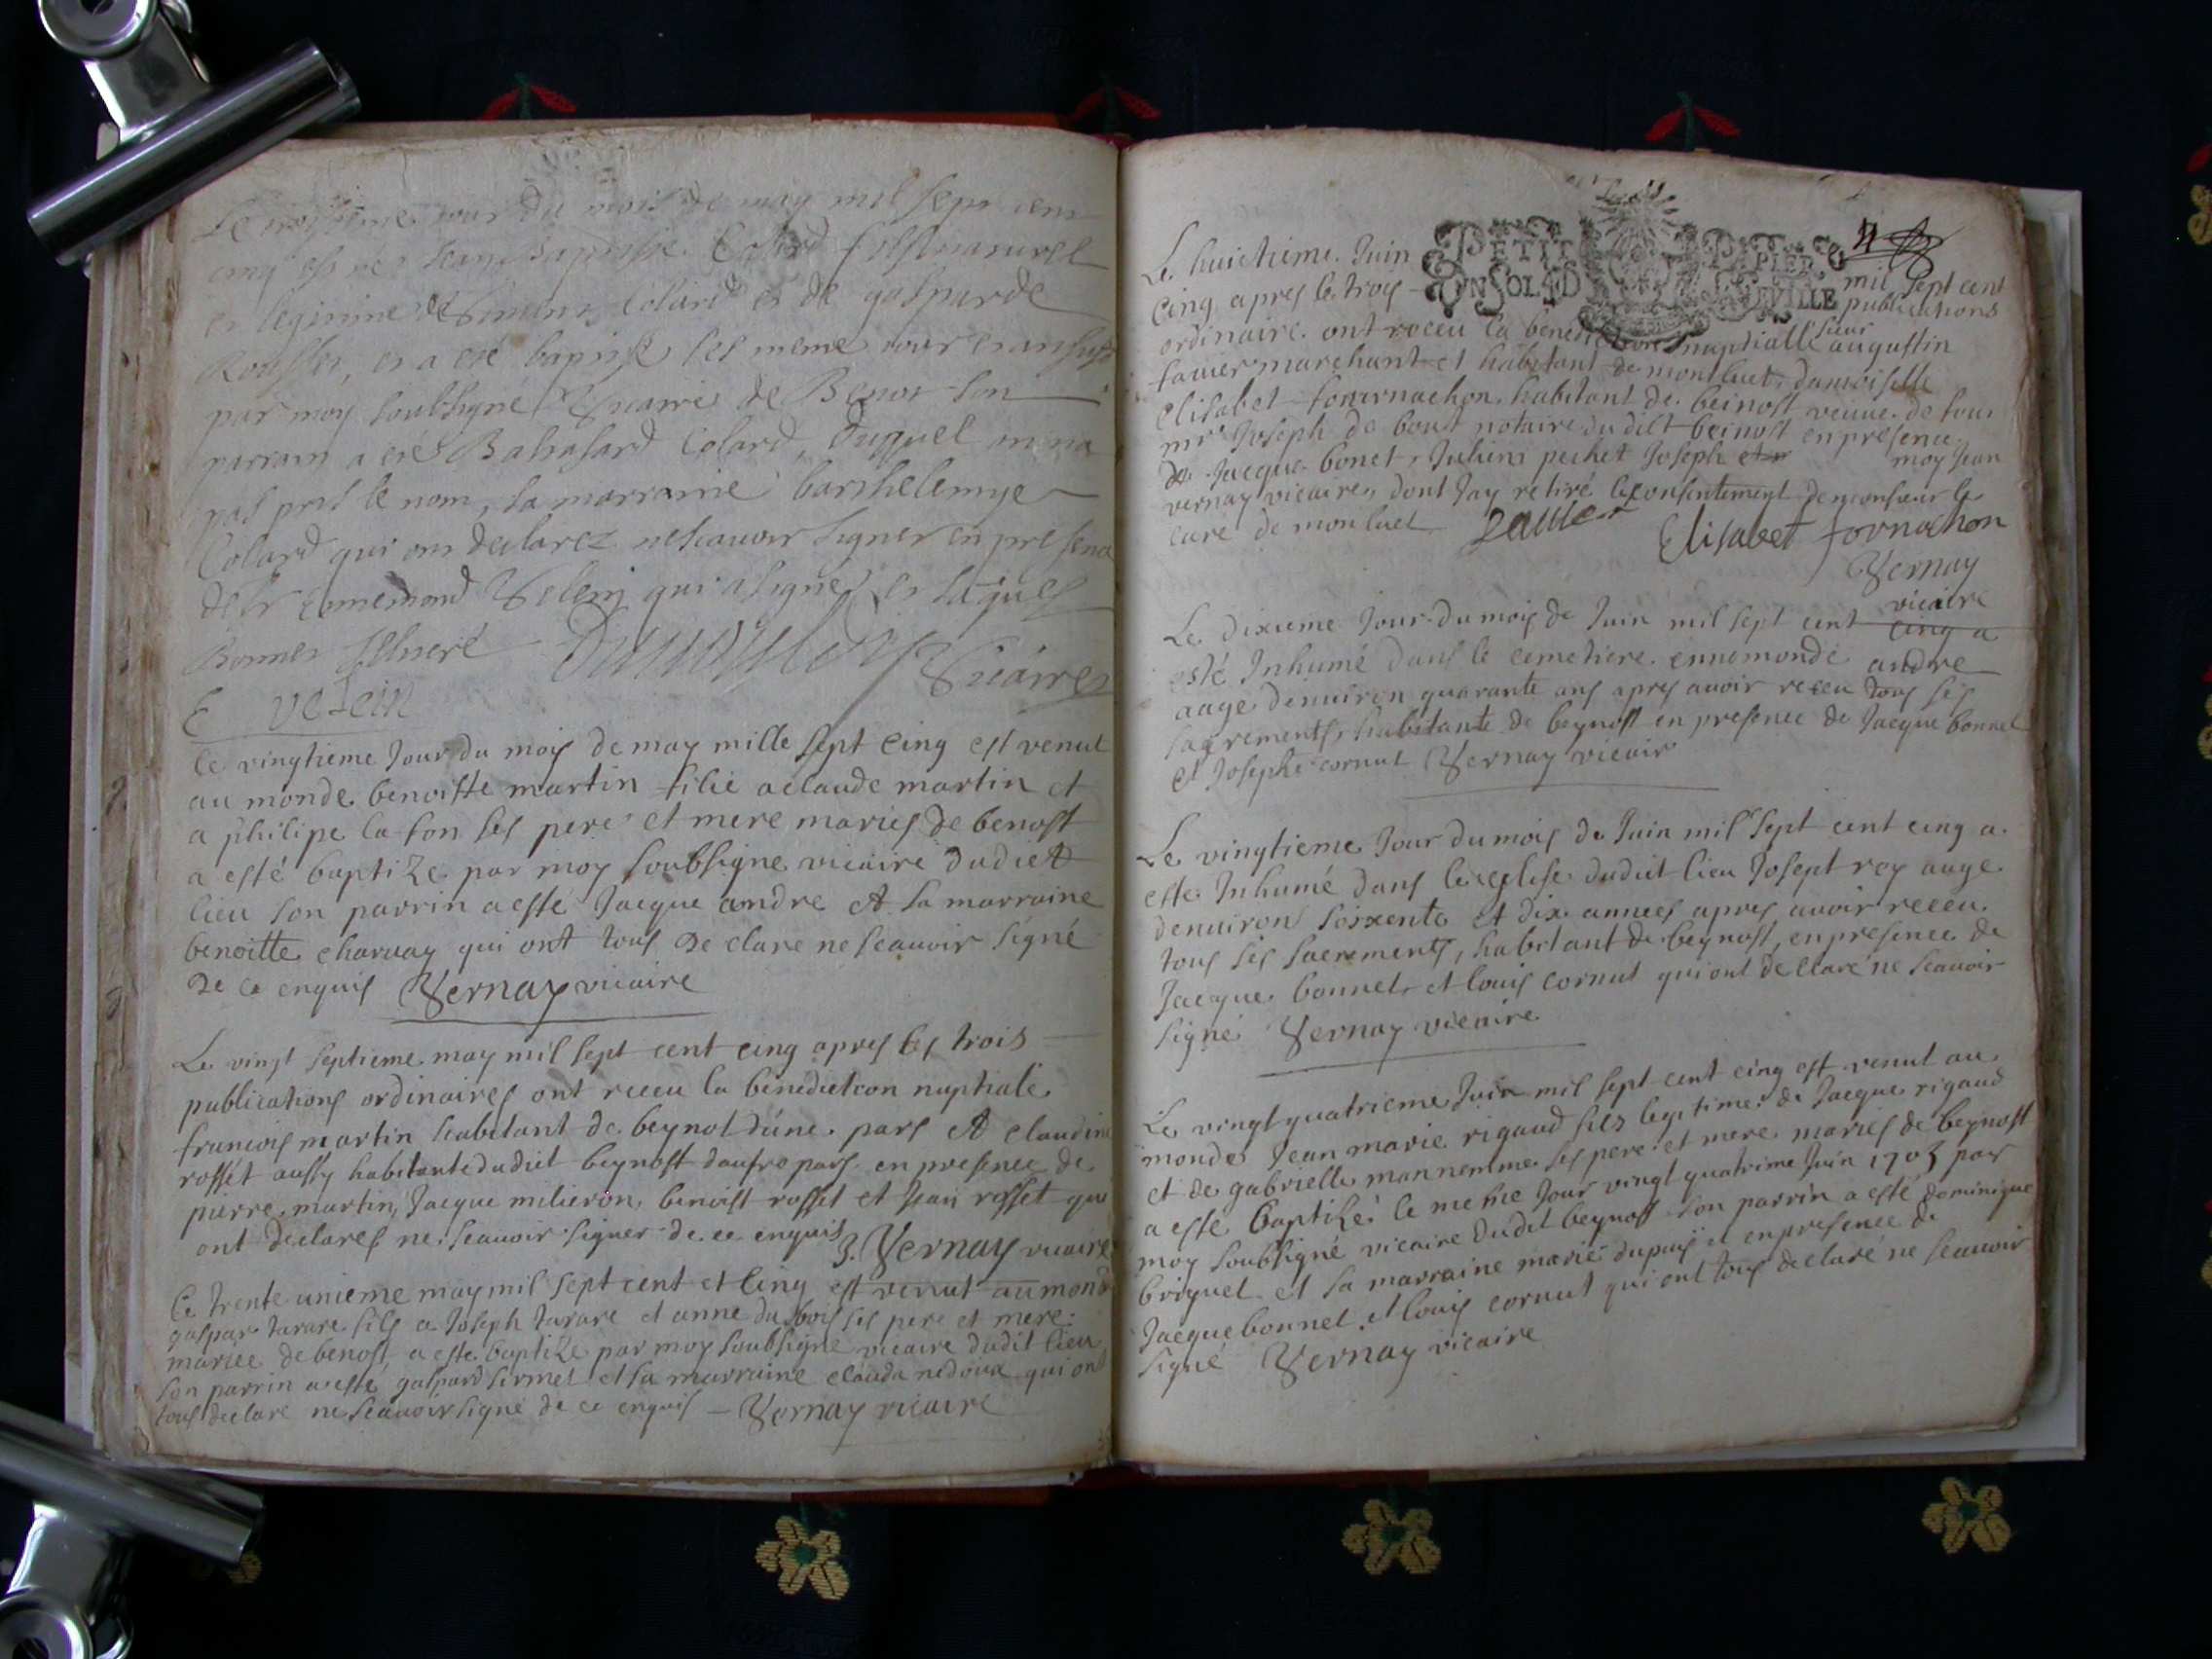 Le troisieme jour du mois de may mil sept cent
cinq est né Jean Baptiste Colard fils naturel
et legitime de Colard et de gasparde
Rousset, et a esté baptisé les meme jour et an susd
par moy soubsigné Vicaire de Benot son
parrain a été Baltasard Colard, duquel
pas pris le nom, sa marraine barthelemye
Colard qui ont declarez ne scauoir signer en presence
de Sr Ennemond Velein qui a signé, et Jaques
Bonnet Illiteré Vicaire
E velein
Le vingtieme Jour du mois de may mille sept cinq est venut
au monde benoitte martin filie a claude martin et
a philipe la fon ses pere et mere mariés de benost
a esté baptize par moy soubsigne vicaire dudict
lieu son parrin a esté Jacque andre et sa marraine
benoitte charuay qui ont tous declare ne scauoir signé
de ce enquis Vernay vicaire
Le vingt septieme may mil sept cent cinq apres les trois
publications ordinaires ont receu la benediction nuptiale
francois martin habitant de beynot d'une part et claudine
rosset aussy habitante dudict beynost d'autre part en presence de
pierre martin, Jacque milieron, benoist rosset et Jean rosset qui
ont declares ne scauoir signer de ce enquis J. Vernay vicaire
Le trente unieme may mil sept cent et cinq est venut au monde
gaspar tarare fils a Joseph tarare et anne du bois ses pere et mere
mariée de benost, a este baptizé par moy soubsigné vicaire dudit lieu
son parrin a esté gaspard sermet et sa marraine clauda nedoux qui ont
tous declare ne scauoir signé de ce enquis Vernay vicaire
4
PETIT PAPIER
UN SOL 4 D LE VILLE
Le huictieme Juin mil sept cent
cinq apres le troys publications
ordinaire ont receu la benediction nuptialle sieur augustin
fauier marchant et habitant de montluet, damoiselle
elisabet fournachon habitant de beinost veuue de feu
mr Joseph de bout notaire du dict beinost en presence
de Jacque bonet, Julien pechet Joseph moy Jean
vernay vicaire, dont Jay retiré le consentement de monsieur le
curé de monluet fauier Elisabet fornachon
Vernay
vicaire
Le dixieme Jour du mois de Juin mil sept cent cinq a
esté Inhumé dans le cemetiere ennemonde andre
aage denuiron quarante ans apres auoir receu tous ses
sagrements, habitante de beynost en presence de Jacque bonnet
et Josephe cornut Vernay vicair
Le vingtieme Jour du mois de Juin mil sept cent cinq a
este Inhumé dans leglise dudit lieu Josept roy aage
denuiron soixente et dix annees apres auoir receu
tous ses sacrements, habitant de beynost, en presence de
Jacque bonnet et louis cornut qui ont declaré ne scauoir
signé Vernay vicaire
Le vingt quatrieme Juin mil sept cent cinq est venut au
monde Jean marie rigaud fils legitime de Jacque rigaud
et de gabrielle mannemme ses pere et mere mariés de beynost
a este baptizé le meme Jour vingt quatrime Juin 1705 par
moy soubsigné vicaire dudit beynost son parrin a esté dominique
briquet et sa marraine marie dupuis et en presence de
Jacque bonnet et louis cornut qui ont tous declaré ne scauoir
signé Vernay vicaire